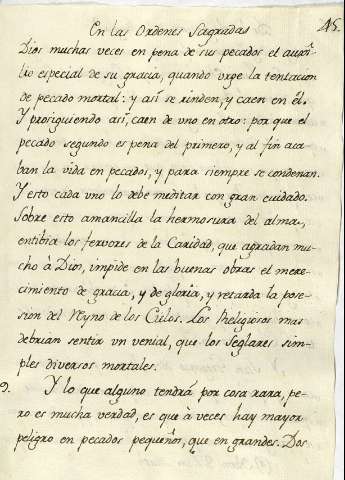 En las Ordenes Sagradas 45.
Dios muchas veces en pena de sus pecados el auxi-
lio especial de su gracia, quando urge la tentacion
de pecado mortal: y así se rinden, y caen en él.
Y prosiguiendo así, caen de uno en otro: por que el
pecado segundo es pena del primero, y al fin aca-
ban la vida en pecados, y para siempre se condenan.
Y esto cada uno lo debe meditar con gran cuidado.
Sobre esto amancilla la hermosura del alma,
entibia los fervores de la Caridad, que agradan mu-
cho à Dios, impide en las buenas obras el mere-
cimiento de gracia, y de gloria, y retarda la pose-
sion del Reyno de los Cielos. Los Religiosos mas
debrian sentir un venial, que los Seglares sim-
ples diversos mortales.
9. Y lo que alguno tendrá por cosa rara, pe-
ro es mucha verdad, es que à veces hay mayor
peligro en pecados pequeños, que en grandes. Dos